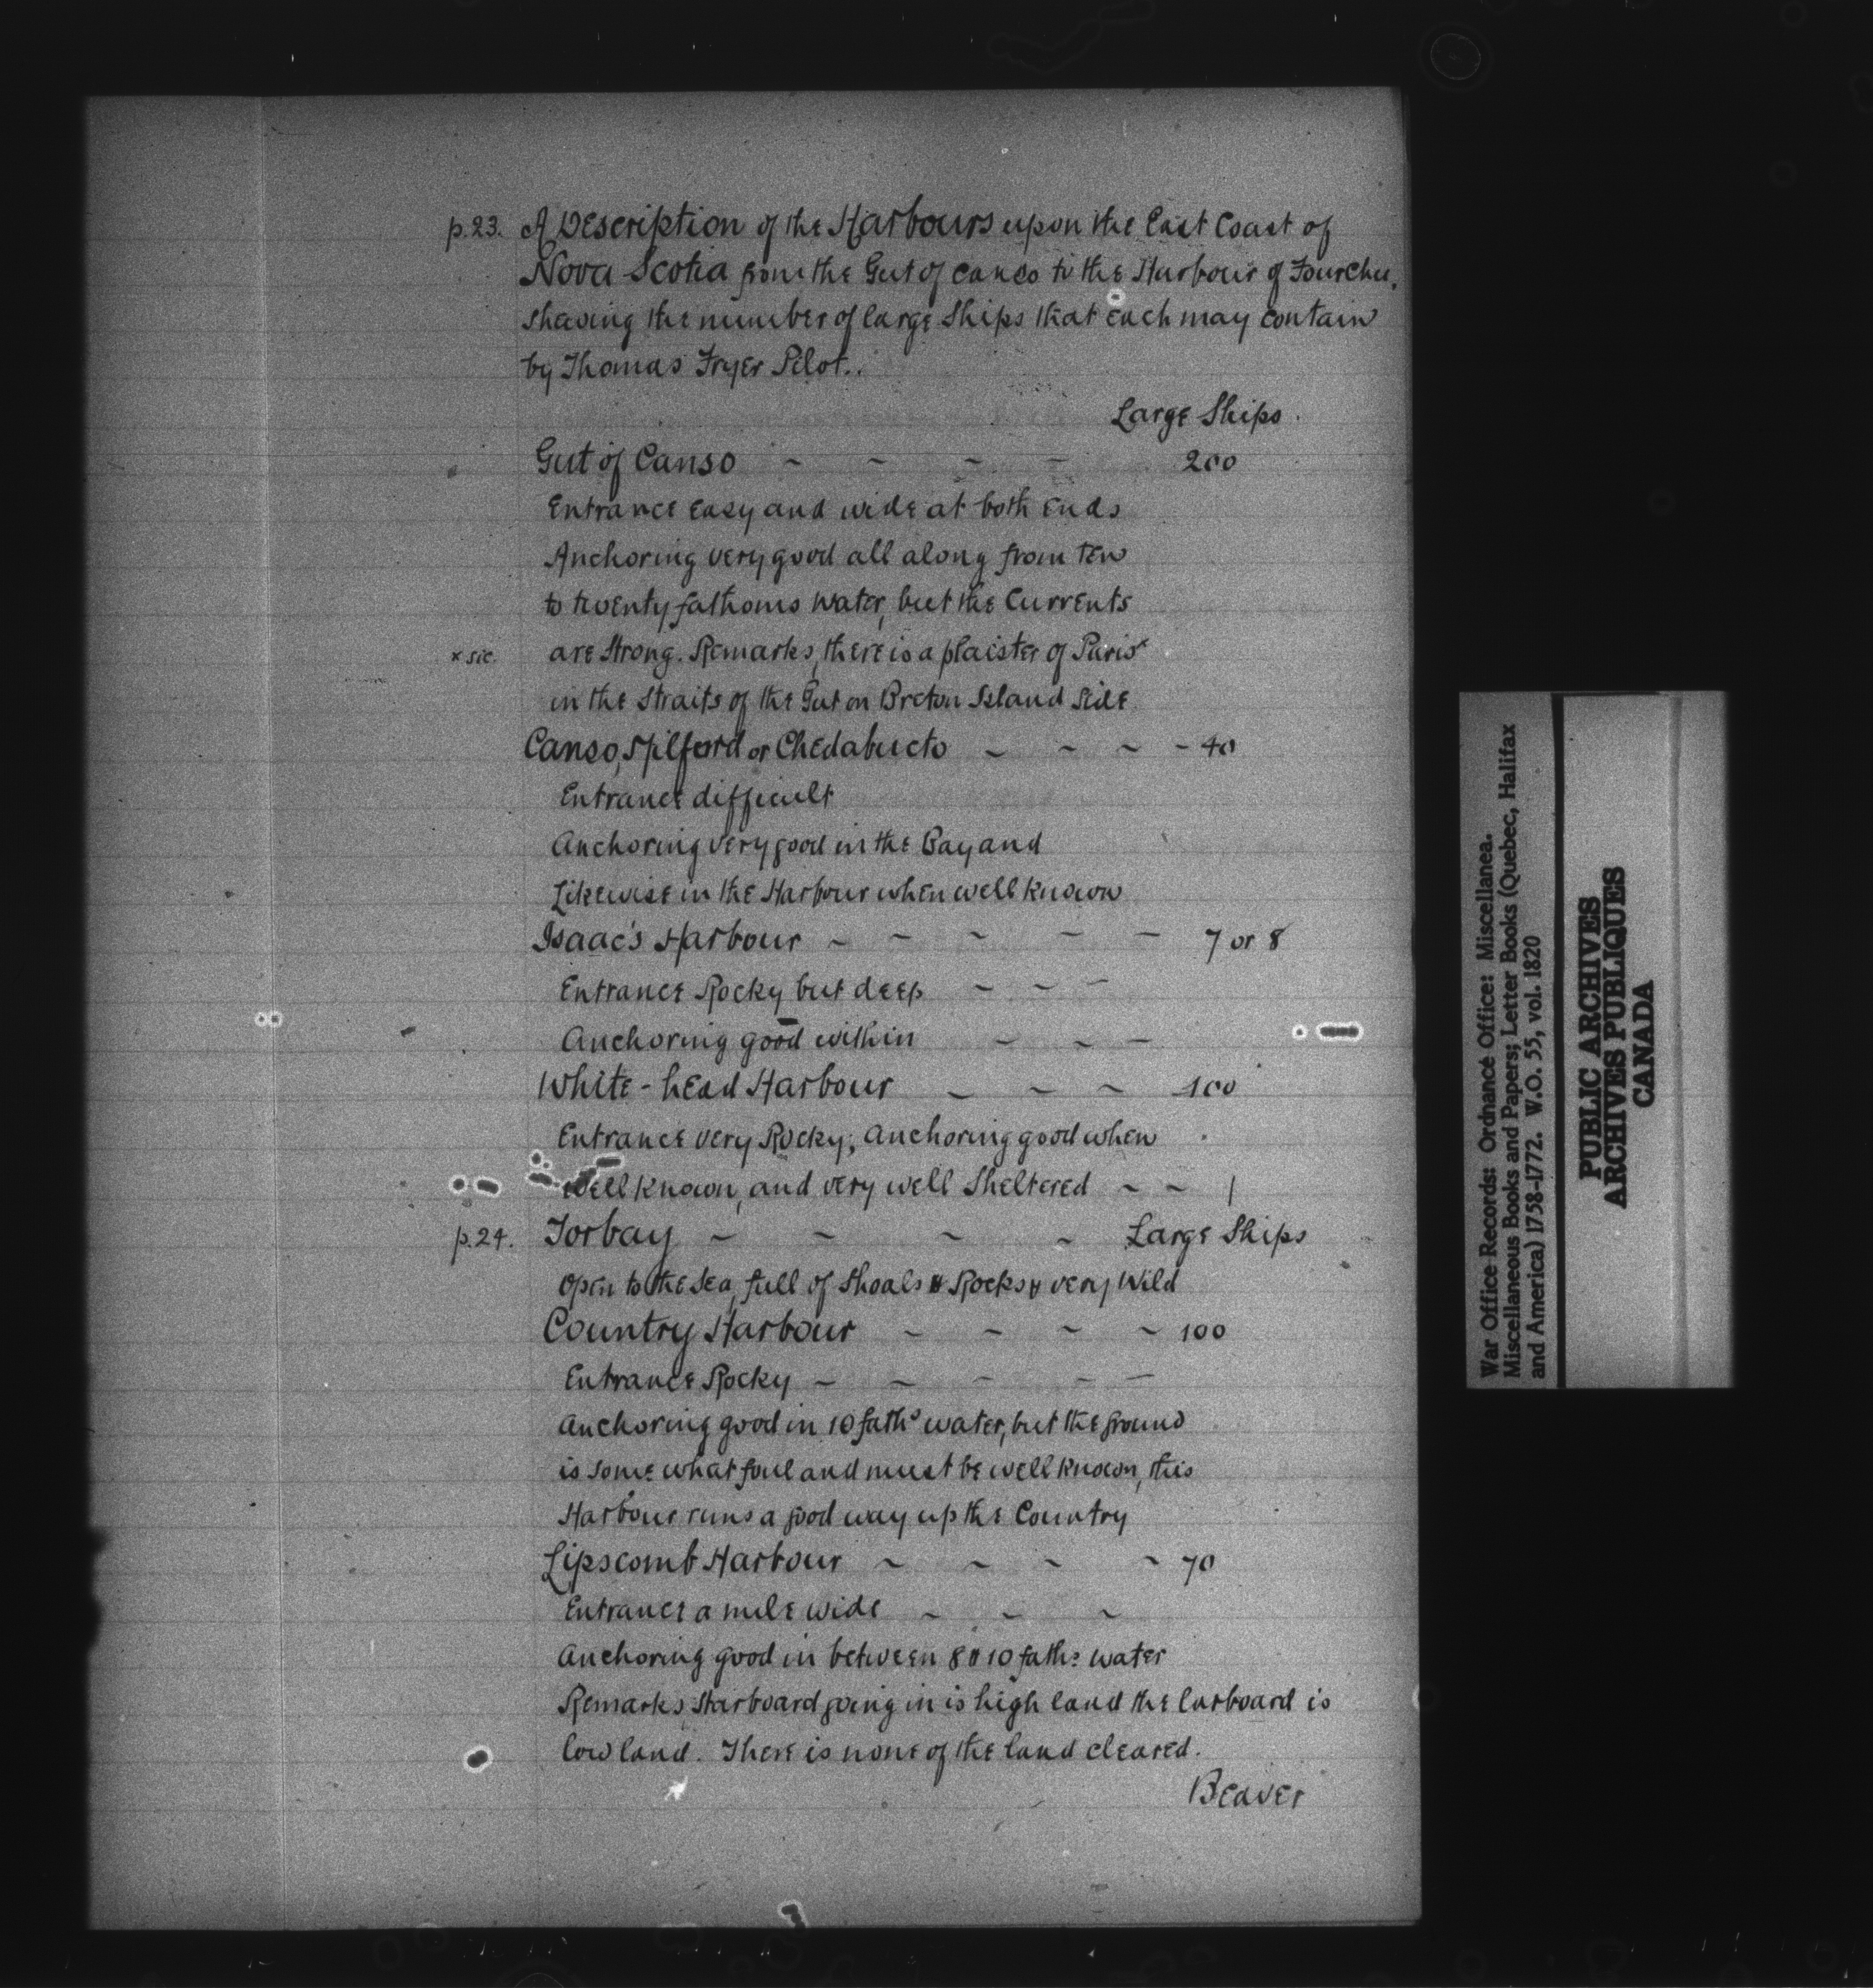 p.23. A Description of the Harbours upon the East Coast of
Nova Scotia from the Gut of Canso to the Harbour of Fourchu,
shewing the number of large Ships that each may contain
by Thomas Fryer Pilot..
Large Ships.
Gut of Canso ~ ~ ~ ~ 200
Entrance easy and wide at both ends
Anchoring very good all along from ten
to twenty fathoms water, but the Currents
x sic. are strong. Remarks, there is a plaister of Paris x
in the Straits of the Gut on Breton Island side
Canso, Milford or Chedabucto ~ ~ ~ ~ 40
Entrance difficult
Anchoring very good in the Bay and
Likewise in the Harbour when well known
Isaac's Harbour ~ ~ ~ ~ ~ 7 or 8
Entrance Rocky but deep ~ ~ ~
Anchoring good within ~ ~ ~
White-head Harbour ~ ~ ~ 100
Entrance very Rocky; Anchoring good when
well known, and very well Sheltered ~ ~
p.24. Torbay ~ ~ ~ ~ Large Ships
Open to the Sea, full of Shoals & Rocks & very Wild
Country Harbour ~ ~ ~ ~ 100
Entrance Rocky ~ ~ ~ ~ ~
Anchoring good in 10 faths water, but the ground
is some what foul and must be well known, this
Harbour runs a good way up the Country
Lipscomb Harbour ~ ~ ~ ~ 70
Entrance a mile wide ~ ~ ~
Anchoring good in between 8 & 10 faths water
Remarks Starboard going in is high land the larboard is
low land. There is none of the land cleared.
Beaver
War Office Records: Ordnance Office: Miscellanea.
Miscellaneous Books and Papers; Letter Books (Quebec, Halifax
and America) 1758-1772. W.O. 55, vol. 1820
PUBLIC ARCHIVES
ARCHIVES PUBLIQUES
CANADA